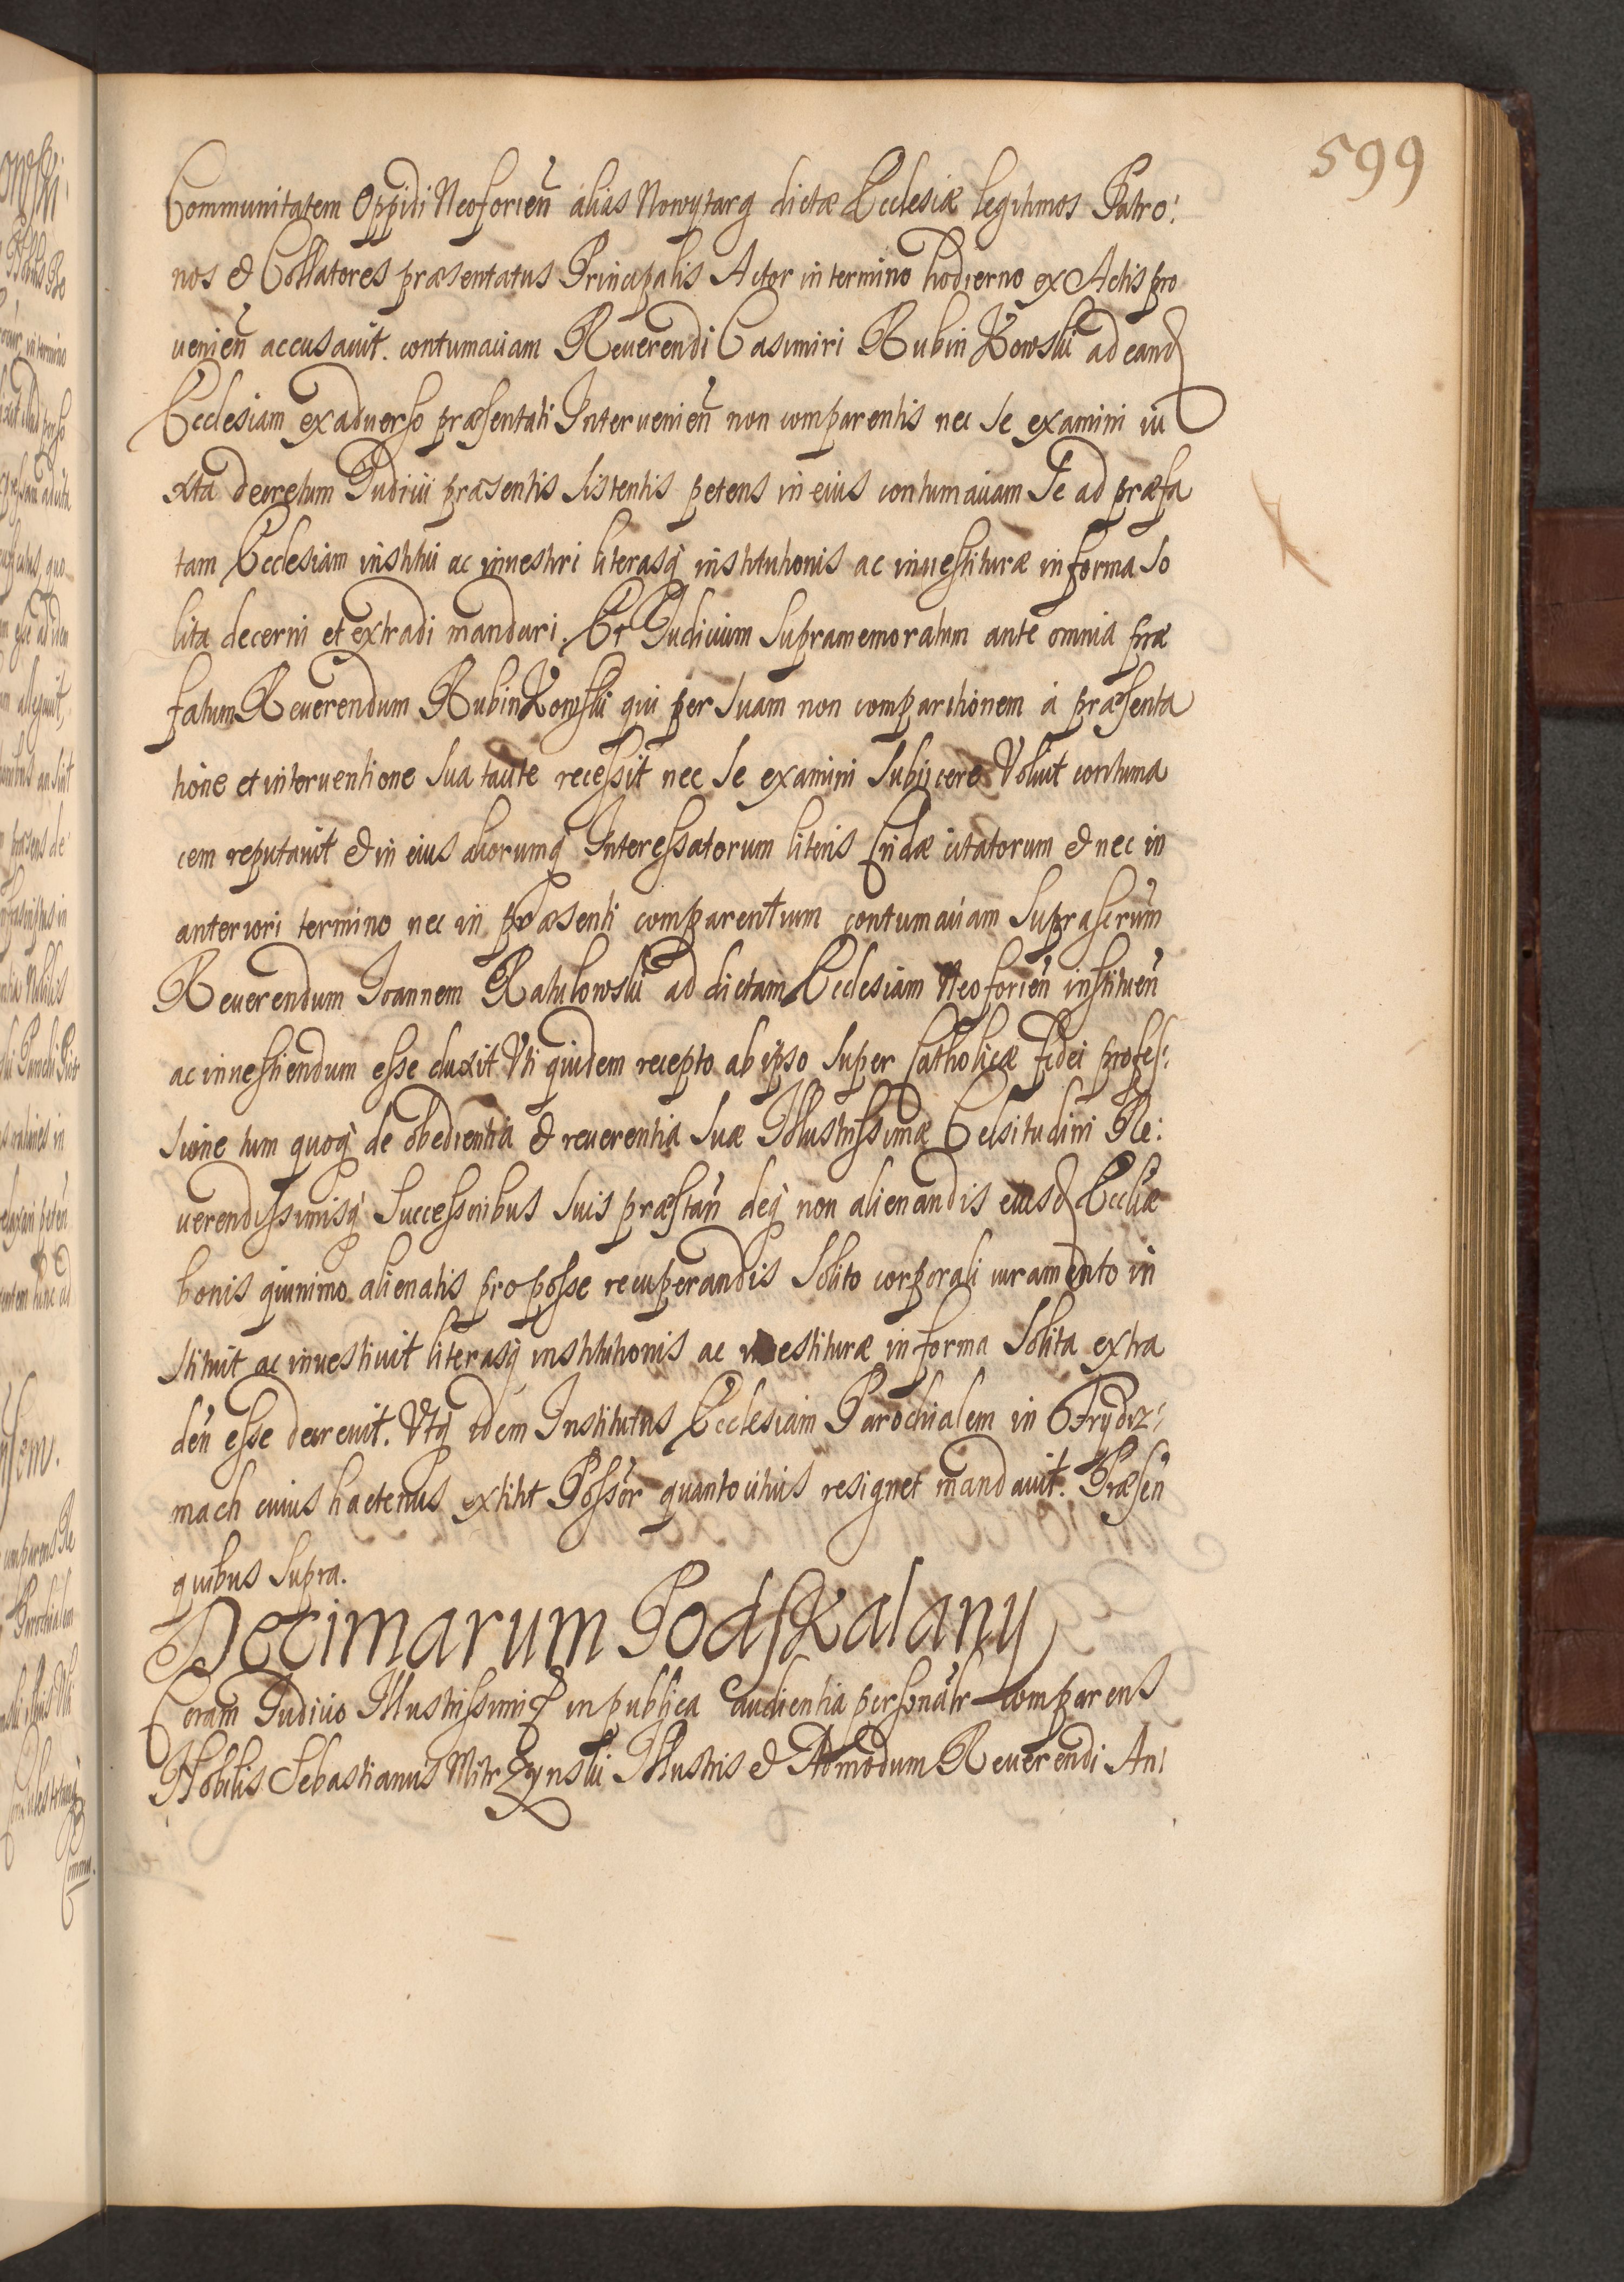 599
Communitatem Oppidi Neoforien̄ alias Nowytarg dictæ Ecclesiæ legitimos Patro:
nos & Collatores præsentatus Principalis Actor in termino hodierno ex Actis pro
uenien̄ accusauit. contumaciam Reuerendi Casimiri RubinKowski ad eand
Ecclesiam ex aduerso præsentati Interuenien̄ non comparentis nec se examini iu
xta decretum Iudicii præsentis sistentis petens in eius contumaciam Se ad præfa
tam Ecclesiam institui ac inuestiri literasq̀ institutionis ac inuestituræ in forma so
lita decerni et extradi mandari. Et Iudicium supramemoratum ante omnia præ
fatum Reuerendum RubinKowski qui per suam non comparitionem à præsenta
tione et interuentione sua tacite recessit nec se examini subijcere Voluit contuma
cem reputauit & in eius aliorumq̀ Interessatorum literis Cridæ citatorum & nec in
anteriori termino nec in præsenti comparentium contumaciam suprascrum̄
Reuerendum Ioannem Ratulowski ad dictam Ecclesiam Neoforien̄ instituen̄
ac inuestiendum esse duxit Vti quidem recepto ab ipso super Catholicæ fidei profes:
sione tum quoq̀ de obedientia & reuerentia suæ Illustrissimæ Celsitudini Re:
uerendissimisq̀ Successoribus suis præstan̄ deq̀ non alienandis eiusd Eccliæ
bonis quinimo alienatis pro posse recuperandis solito corporali iuramento in
stituit ac inuestiuit literasq̀ institutionis ac inuestituræ in forma solita extra
den̄ esse decreuit. Vtq̀ idem Institutus Ecclesiam Parochialem in Frydrz:
mach cuius hactenus extitit Possōr quantocitius resignet mandauit. Præsen̄
quibus supra.
Decimarum Podskalany
Coram Iudicio Illustrissimi & in publica audientia personālr comparens
Nobilis Sebastianus Mitrzynski Illustris & Admodum Reuerendi An: